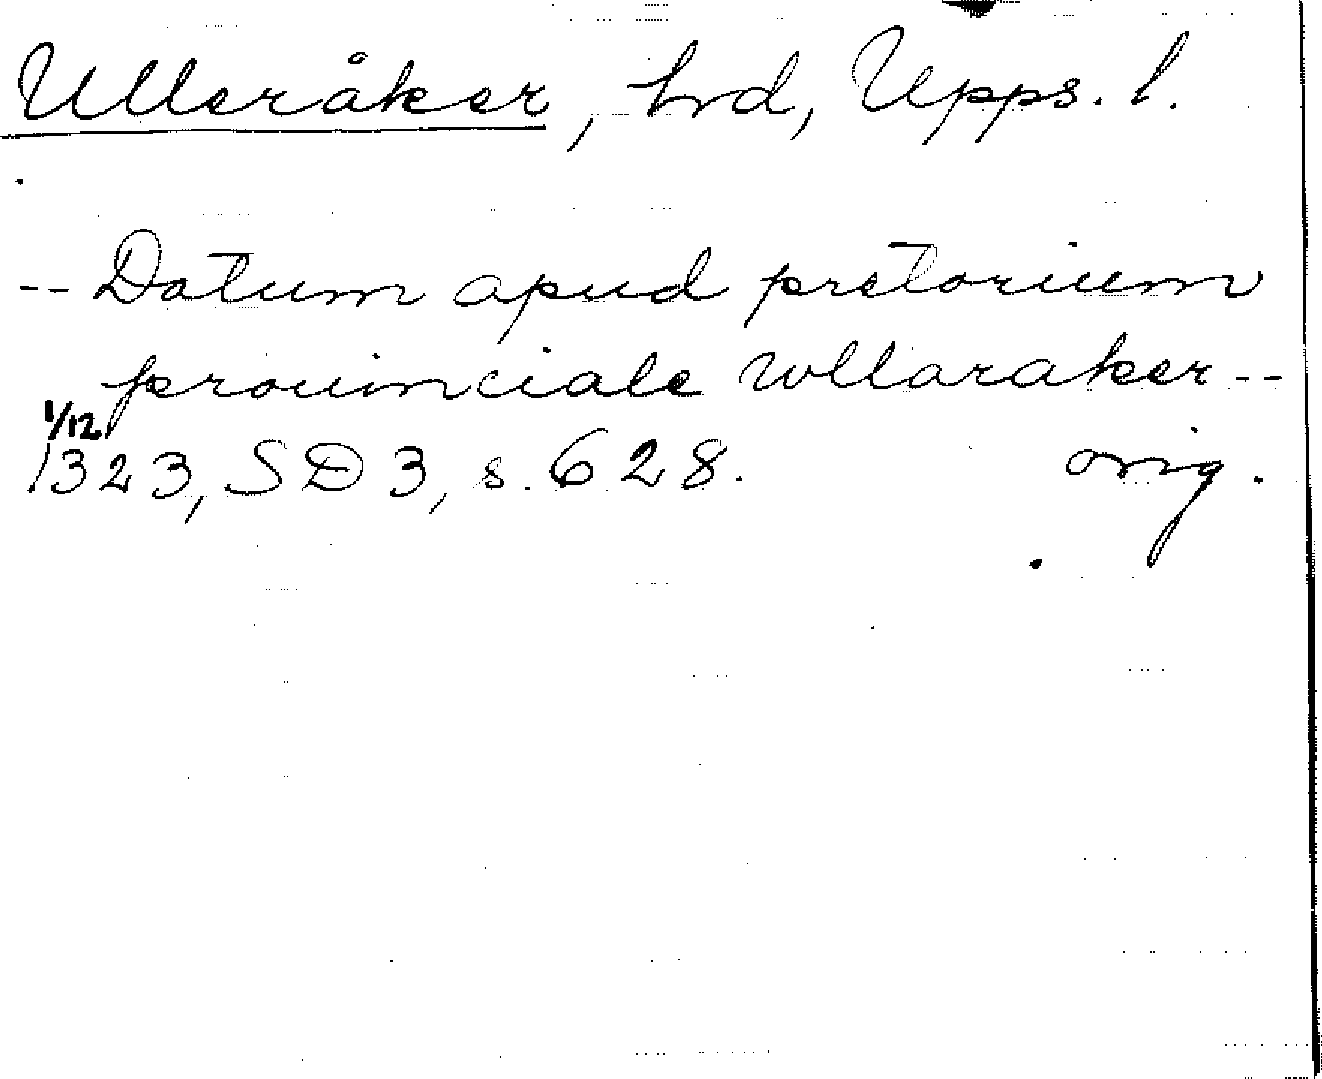 Ulleråker, hrd, Upps. l.
-- Datum apud pretorium
prouinciale wllaraker --
1/12
1323, SD 3, s. 628. orig.